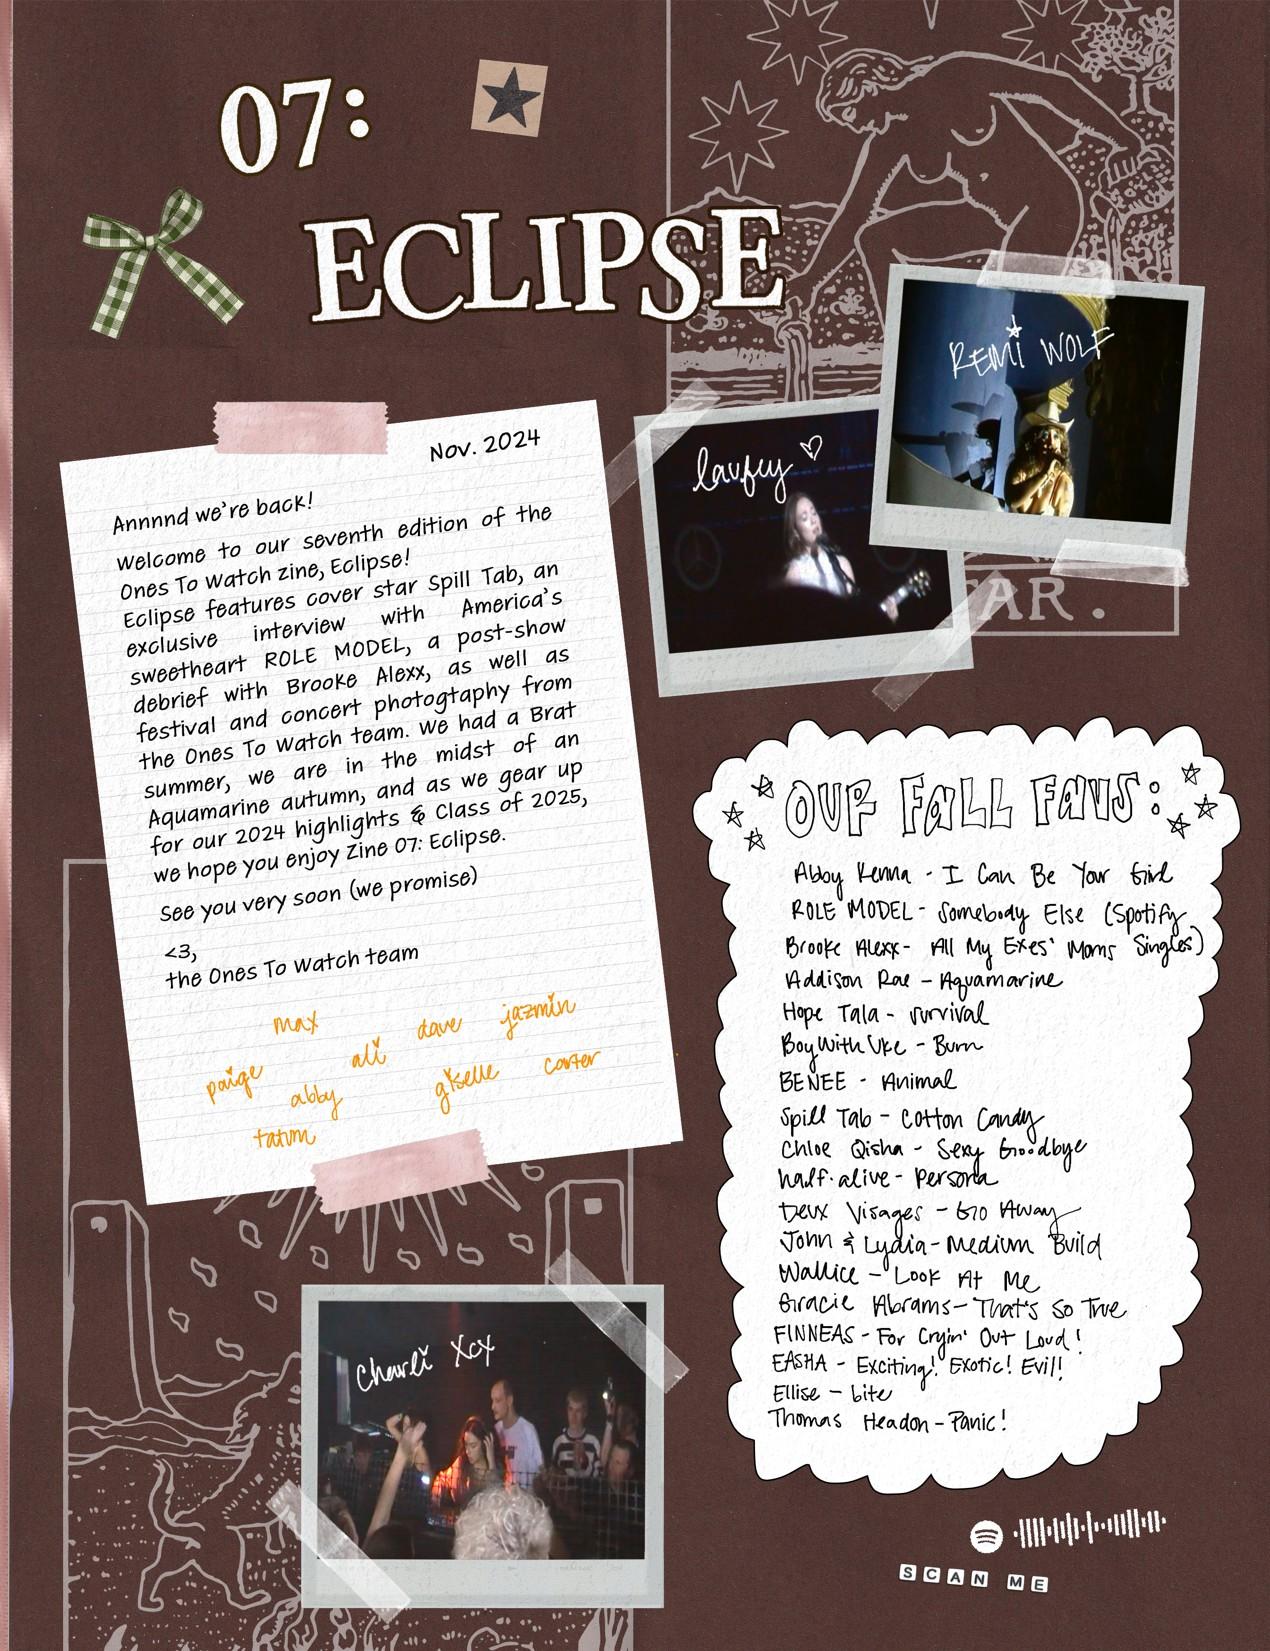 07:
ECLIPSE
REMI WOLF
laufey
AR.
Nov. 2024
Annnnd we're back!
Welcome to our seventh edition of the
Ones To Watch zine, Eclipse!
Eclipse features cover star Spill Tab, an
exclusive interview with America's
sweetheart ROLE MODEL, a post-show
debrief with Brooke Alexx, as well as
festival and concert photogtaphy from
the Ones To Watch team. We had a Brat
summer, we are in the midst of an
Aquamarine autumn, and as we gear up
for our 2024 highlights & Class of 2025,
we hope you enjoy Zine 07: Eclipse.
See you very soon (we promise)
<3,
the Ones To Watch team
max
dave
jazmin
paige
ali
abby
giselle
carter
tatum
Charli Xcx
OUR FALL FAVS:
Abby Kenna - I Can Be Your Girl
ROLE MODEL - Somebody Else (Spotify
Brooke Alexx - All My Exes' Moms Singles)
Addison Rae - Aquamarine
Hope Tala - survival
BoyWithUke - Burn
BENEE - Animal
Spill Tab - Cotton Candy
Chloe Qisha - Sexy Goodbye
half·alive - Persona
Deux Visages - Go Away
John & Lydia - Medium Build
Wallice - Look At Me
Gracie Abrams - That's So True
FINNEAS - For Cryin' Out Loud!
EASHA - Exciting! Exotic! Evil!
Ellise - bite
Thomas Headon - Panic!
SCAN ME